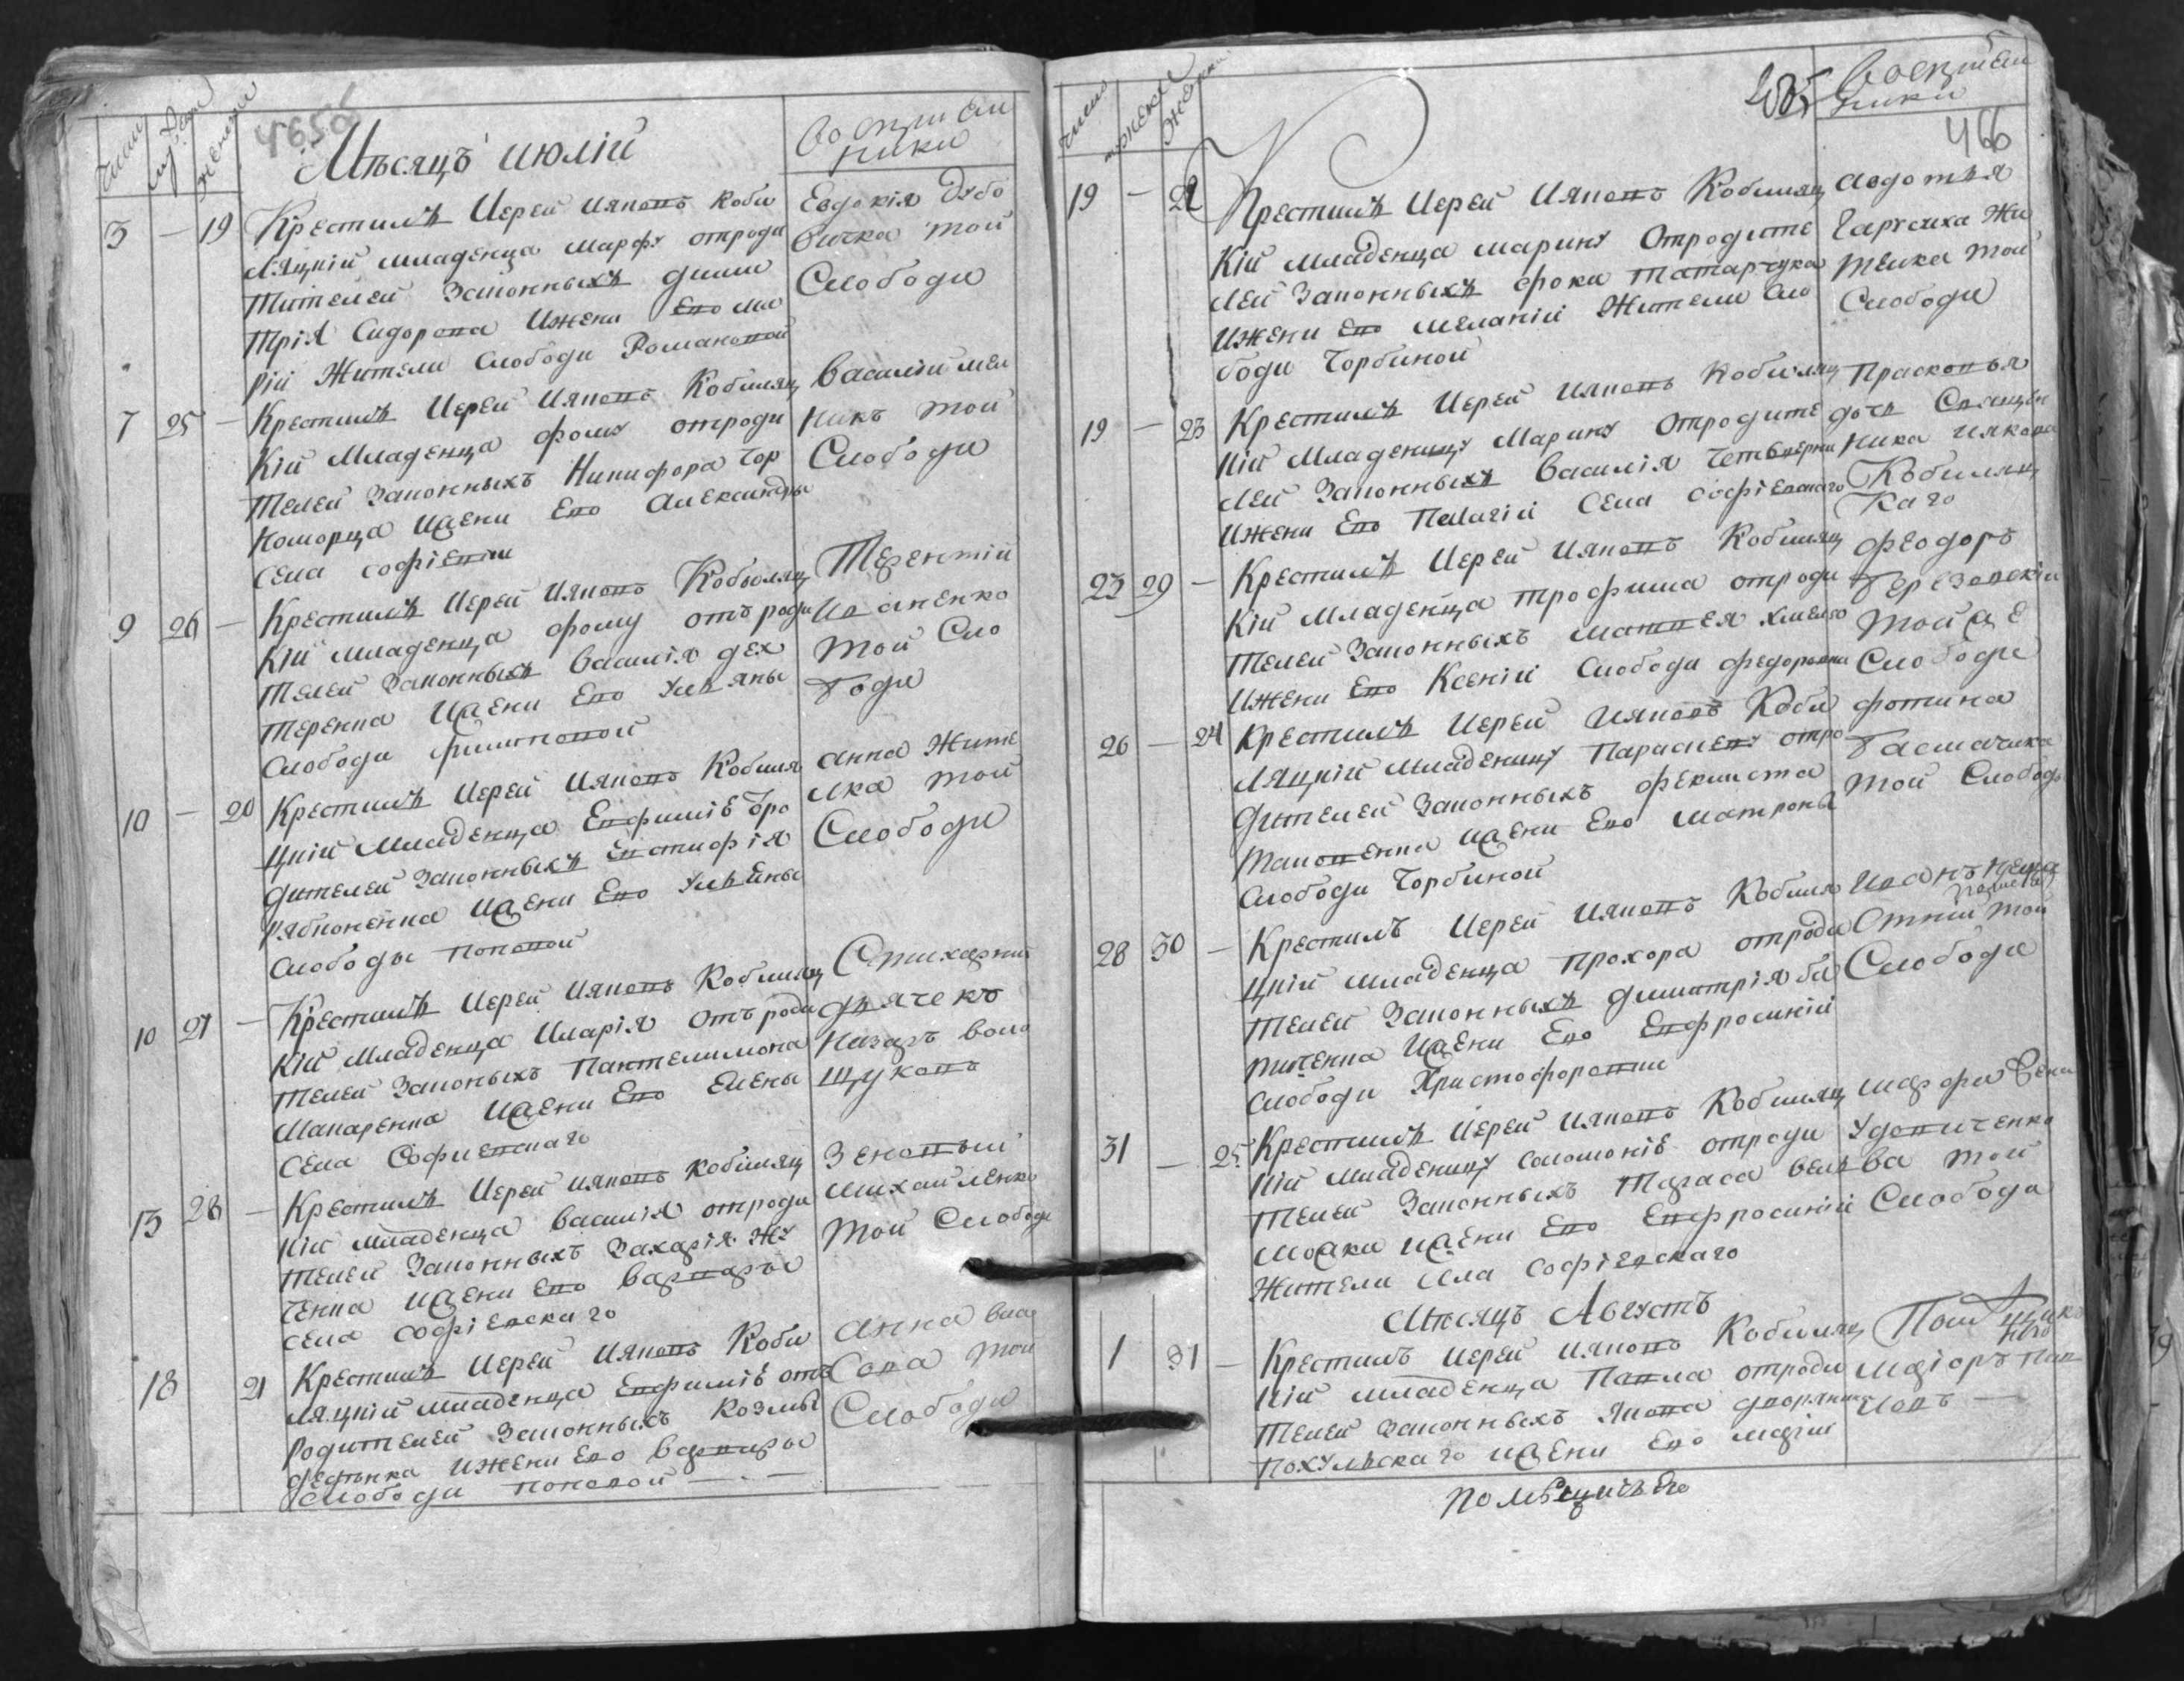 465
Мѣсяцъ июлій
воспріем
ники
3 — 19 Крестилъ Иерей Ияковъ Коби
ляцкій младенца Марфу отроди
тителей Законныхъ дими
трія Сидорова Ижени Его Ма
рій Жители Слободи Романовой
Евдокія Дубо
вичка той
Слободи
7 25 — Крестилъ Иерей Ияковъ Кобиляц
кій Младенца фому отроди
телей Законныхъ Никифора Чор
номорца Ижени Его Александры
Села софіевки
Василій Мел
никъ той
Слободи
9 26 — Крестилъ Иерей Ияковъ Кобыляц
кій младенца фому отъроди
телей Законныхъ Василія дех
теренка Ижени Его Ульяны
Слободи филиповой
Терентій
Иваненко
той Сло
боди
10 — 20 Крестилъ Иерей Ияковъ Кобиля
цкій Младенца Евфимію Ѿро
дителей Законныхъ Евстифія
Рябоконенка Ижени Его Ульяны
Слободы поповой
Анна Жите
лка той
Слободи
10 27 — Крестилъ Иерей Ияковъ Кобиляц
кій Младенца Иларія отъроди
телей Законыхъ Пантелимона
Макаренка Ижени Его Елены
Села Софиевскаго
Стихарний
дьячекъ
Назаръ Воло
щуковъ
13 28 — Крестилъ Иерей Ияковъ Кобиляц
кій младенца Василія отроди
телей Законныхъ Захарія Жу
ченка Ижени Его Варвары
села софіевскаго
Зеновъй
Михайленко
той Слободи
18 21 Крестилъ Иерей Ияковъ Коби
ляцкій младенца Евфимію отъ
Родителей Законныхъ Козмы
Ижени Его Варвары
Слободи поповой —
Анна Вла
сова той
Слободи
205
воспріем
ники
466
19 — 22 Крестилъ Иерей Ияковъ Кобиляц
кій младенца марину Отродите
лей Законныхъ фоки татарчука
Ижени Его меланій Жители Сло
боди Чорбиной
Авдотья
Жи
телка той
Слободи
19 — 23 Крестилъ Иерей Ияковъ Кобиляц
кій Младеницу Марину Отродите
лей Законныхъ Василія Четверни
Ижени Его Пелагій Села софіевскаго
Прасковья
дочь Священ
ника Иякова
Кобиляц
каго
23 29 — Крестилъ Иерей Ияковъ Кобиляц
кій Младенца трофима отроди
телей Законныхъ матвея хмело
Ижени Его Ксеній Слободи федоровки
феодоръ
Березовскій
той же
Слободи
26 — 24 Крестилъ Иерей Ияковъ Коби
ляцкій младеницу Параскеву отро
дителей Законныхъ феклиста
Ижени Его Матроны
Слободи Чорбиной
фотина
той Слободи
28 30 — Крестилъ Иерей Ияковъ Кобиля
цкій младенца прохора отроди
телей Законныхъ димитрія би
Ижени Его Евфросиній
Слободи Христофоровки
Иванъ
той
Слободи
31 — 25 Крестилъ Иерей Ияковъ Кобиляц
кій младеницу соломонію отроди
телей Законныхъ Тараса Вель
можки Ижени Его Евфросиній
Жители села софіевскаго
Марфа
Удовиченко
ва той
Слободи
Мѣсяцъ Августъ
1 31 — Крестилъ Иерей Ияковъ Кобиляц
кій младенца Павла отроди
телей Законныхъ Якова дворянина
Похулъскаго Ижени Его Марій
маіоръ Пав
ловъ —
помѣщичъ Его